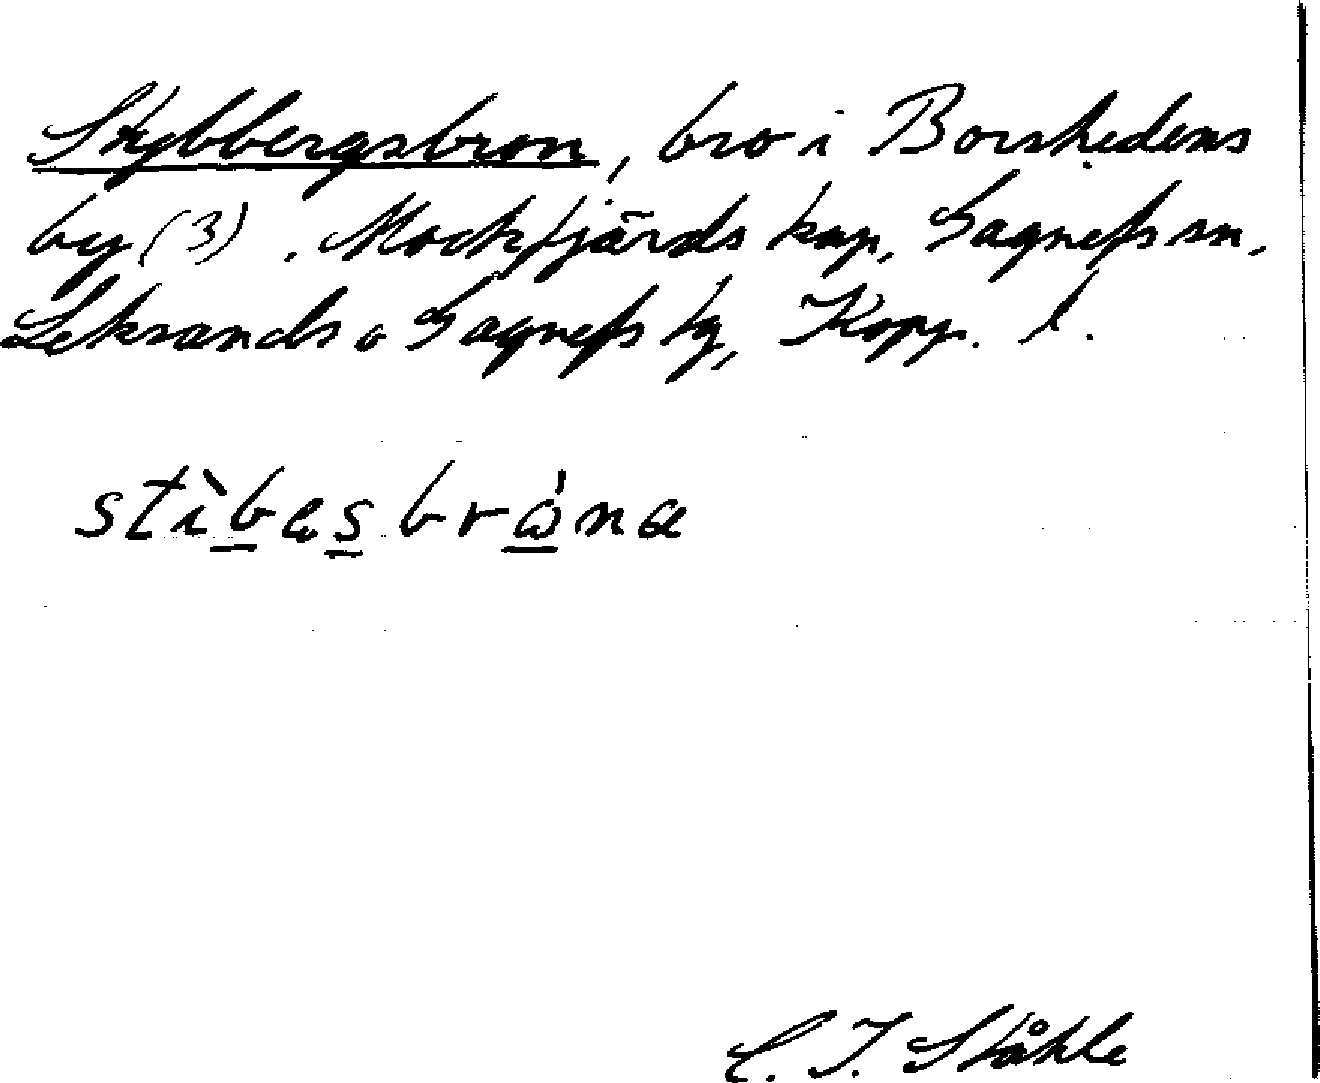 Stybbergsbron, bro i Borshedens
by (3). Mockfjärds kap, Gagnefs sn,
Leksands o Gagnefs tg, Kopp. l.
stìbasbrὼna
C. I. Ståhle